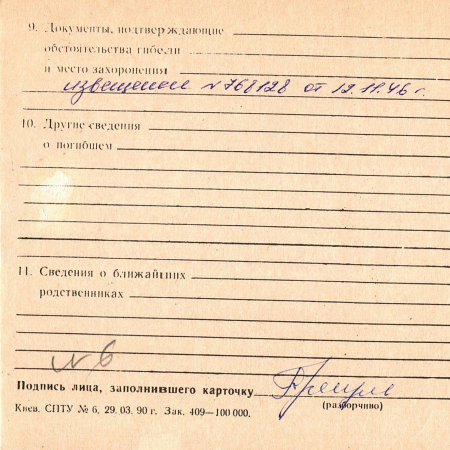 9. Документы, подтверждающие
обстоятельства гибели
и место захоронения
извещение № 768128 от 12.11.46 г.
10. Другие сведения
о погибшем
11. Сведения о ближайших
родственниках
№ 6
Подпись лица, заполнившего карточку
(разборчиво)
Киев. СПТУ № 6, 29. 03. 90 г. Зак. 409—100 000.